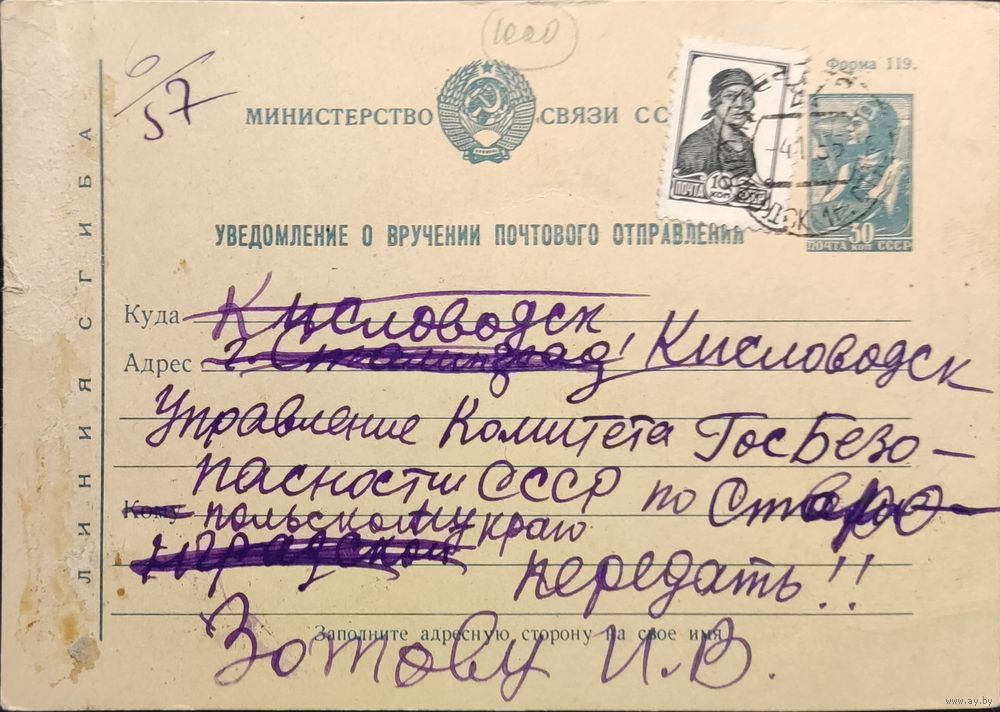 1000
6/57
Форма 119.
МИНИСТЕРСТВО СВЯЗИ СС
ПОЧТА 10 КОП
30
ПОЧТА КОП СССР
УВЕДОМЛЕНИЕ О ВРУЧЕНИИ ПОЧТОВОГО ОТПРАВЛЕНИЯ
ЛИНИЯ СГИБА
Куда Кисловодск
Адрес г. Сталинград! Кисловодск
Управление Комитета ГосБезо-
пасности СССР по Ставро-
Кому польскому краю
передать!!
Заполните адресную сторону на свое имя
Зотову И.В.
www.ay.by